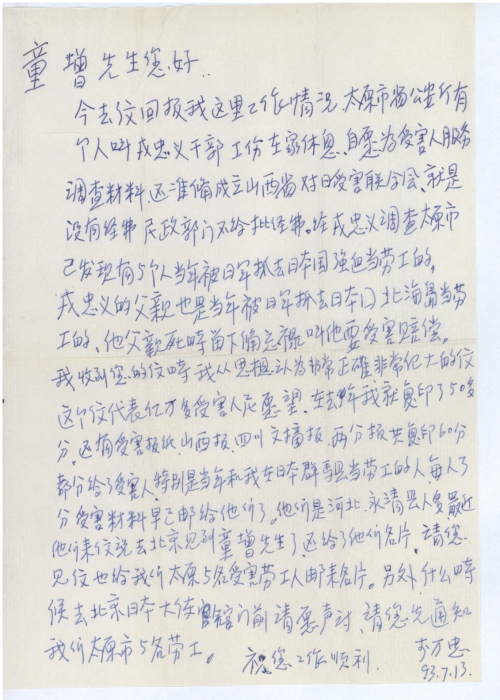 童增先生您好.
今去仪回报我这里工作情况.太原市省公安厅有
个人叫戎忠义干部工伤在家休息.自愿为受害人服务
调查材料.还准备成立山西省对日受害联合会.就是
没有经费民政部门不给批经费.昨戎忠义调查太原市
已发现有5个人当年被日军抓去日本国强迫当劳工的.
戎忠义的父亲也是当年被日军抓去日本 北海道当劳
工的、他父亲死時留下备忘禄叫他要受害赔偿.
我收到您的仪時我从思想认为非常正確非常伟大的仪
这个仪代表亿万多受害人民愿望.在去年我就复印了50多
分.还有受害报纸.山西报.四川文摘报.两分报共复印60分
都分给了受害人.特别是当年和我在日本群馬县当劳工的人.每人了
分受害材料早已邮给他们了。他们是河北.永清县人多最近
他们来仪说去北京见到童增先生了还给了他们名片.请您
见仪也给我们太原5名受害劳工人邮来名片。另外什么時
候去北京日本大使馆门前请愿声讨.请您先通知
我们太原市5名劳工。 祝您工作顺利.
李万忠
93.7.13.